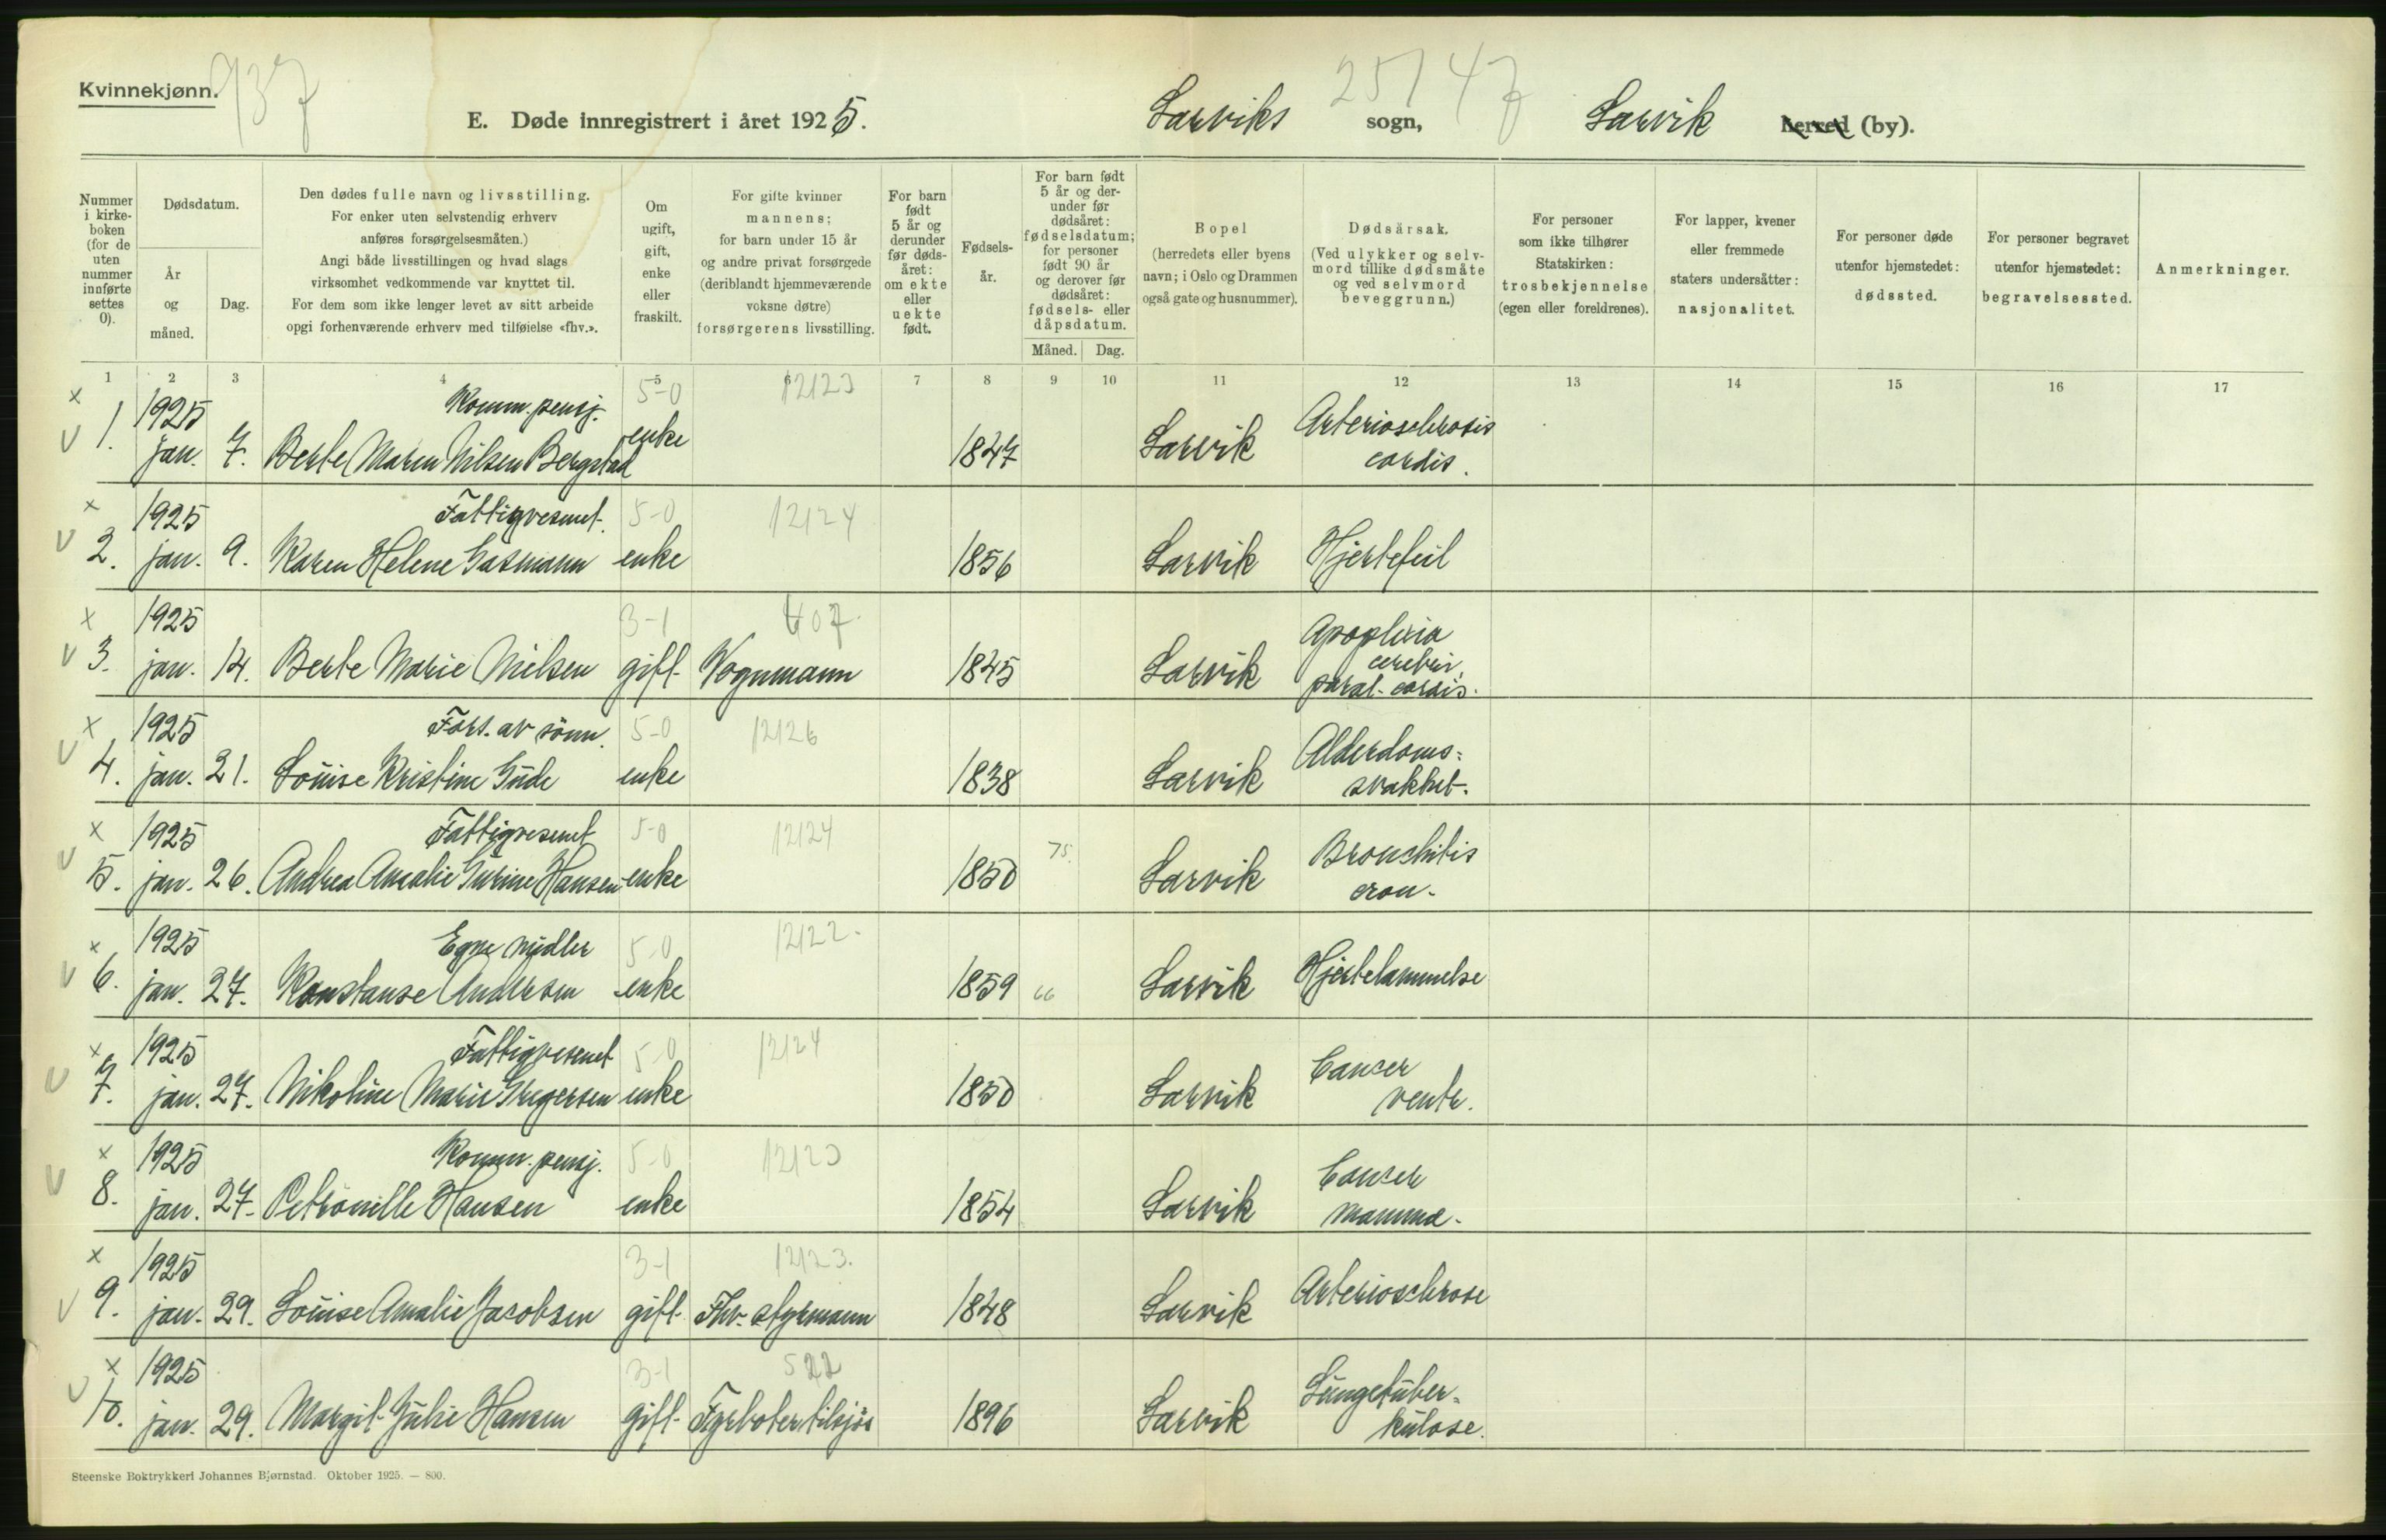 Kvinnekjønn.
737
E. Døde innregistrert i året 1925.
Larviks sogn,
25/47
Larvik herred (by).
Nummer i kirke-boken (for de uten nummer innførte settes 0).
Dødsdatum.
År og måned.
Dag.
Den dødes fulle navn og livsstilling.
For enker uten selvstendig erhverv
anføres forsørgelsesmåten.)
Angi både livsstillingen og hvad slags
virksomhet vedkommende var knyttet til.
For dem som ikke lenger levet av sitt arbeide
opgi forhenværende erhverv med tilføielse «fhv.».
Om ugift, gift, enke eller fraskilt.
For gifte kvinner
mannens;
for barn under 15 år
og andre privat forsørgede
(deriblandt hjemmeværende
voksne døtre)
forsørgerens livsstilling.
For barn født 5 år og derunder før døds-året: om ekte eller uekte født.
Fødsels-år.
For barn født 5 år og der-under før dødsåret: fødselsdatum; for personer født 90 år og derover før dødsåret: fødsels- eller dåpsdatum.
Måned. Dag.
Bopel
(herredets eller byens
navn; i Oslo og Drammen
også gate og husnummer).
Dødsårsak.
(Ved ulykker og selv-
mord tillike dødsmåte
og ved selvmord
beveggrunn.)
For personer
som ikke tilhører
Statskirken:
trosbekjennelse
(egen eller foreldrenes).
For lapper, kvener
eller fremmede
staters undersåtter:
nasjonalitet.
For personer døde
utenfor hjemstedet:
dødssted.
For personer begravet
utenfor hjemstedet:
begravelsessted.
Anmerkninger.
1 2 3 4 5 6 7 8 9 10 11 12 13 14 15 16 17
x 1925 Komm. pensj. 5-0 12123 Arteriosclerosis
v 1. jan. 7. Berte Maren Nilsen Bergstad enke 1847 Larvik cordis.
x 1925 Fattigvesenet. 5-0 12124
v 2. jan. 9. Karen Helene Gasmann enke 1856 Larvik Hjertefeil
x 1925 3-1 407 Apoplexia
v 3. jan. 14. Berte Marie Nielsen gift Vognmann 1845 Larvik cerebri,
paral. cordis.
x 1925 Fors. av sönn. 5-0 12126 Alderdoms=
v 4. jan. 21. Louise Kristine Gude enke 1838 Larvik svakhet.
x 1925 Fattigvesenet 5-0 12124 75. Bronchitis
v 5. jan. 26. Andrea Amalie Gurine Hansen enke 1850 Larvik cron.
x 1925 Egne midler 5-0 12122.
v 6. jan. 27. Konstanse Andersen enke 1859 66 Larvik Hjertelammelse
x 1925 Fattigvesenet 5-0 12124 Cancer
v 7. jan. 27. Nikoline Marie Gregersen enke 1850 Larvik ventr.
x 1925 Komm. pensj. 5-0 12123 Cancer
v 8. jan. 27. Petronille Hansen enke 1854 Larvik mamma.
x 1925 3-1 12123.
v 9. jan. 29. Louise Amalie Jacobsen gift Fhv. styrmann 1848 Larvik Arteriosclerose
x 1925 3-1 522 Lungetuber=
v 10. jan. 29. Margit Julie Hansen gift Fyrbøter tilsjøs 1896 Larvik kulose.
Steenske Boktrykkeri Johannes Bjørnstad. Oktober 1925. — 800.